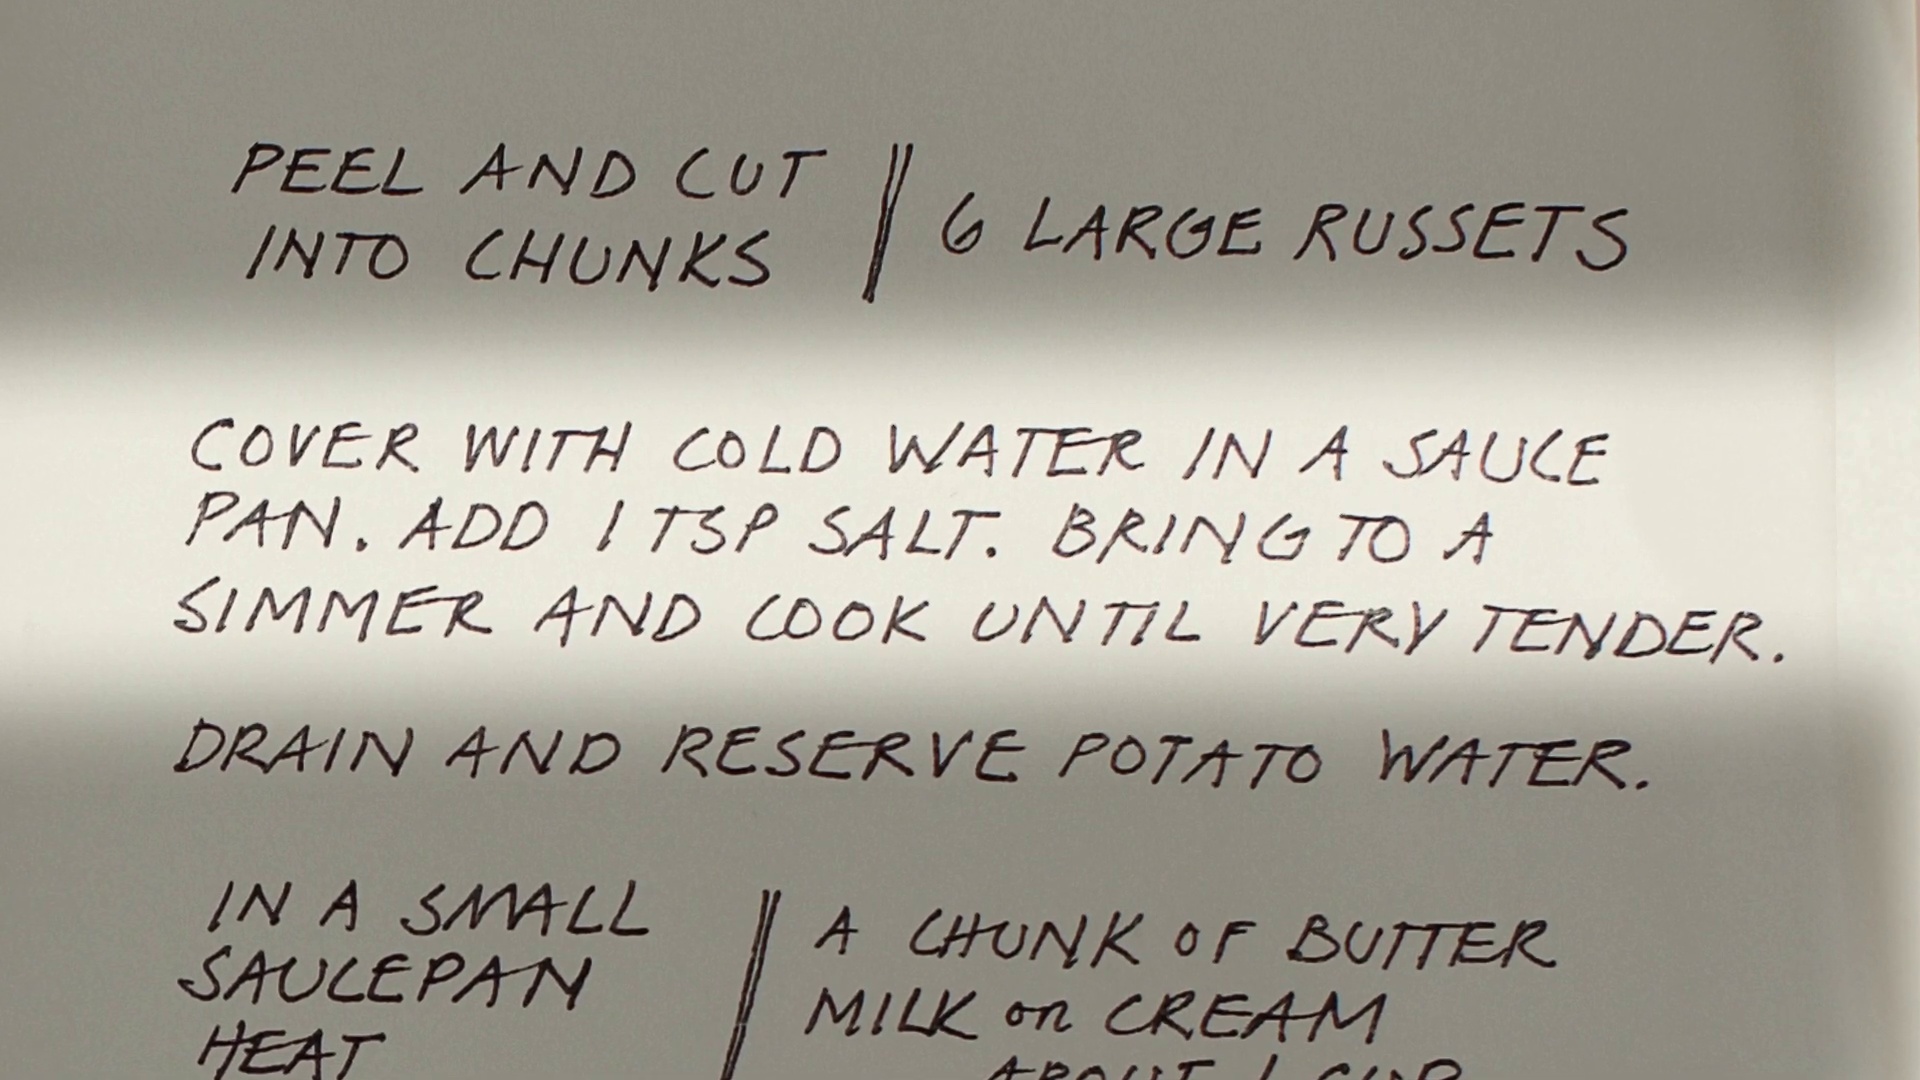 PEEL AND CUT
INTO CHUNKS
6 LARGE RUSSETS
COVER WITH COLD WATER IN A SAUCE
PAN. ADD 1 TSP SALT. BRING TO A
SIMMER AND COOK UNTIL VERY TENDER.
DRAIN AND RESERVE POTATO WATER.
IN A SMALL
SAUCEPAN
HEAT
A CHUNK OF BUTTER
MILK or CREAM
ABOUT 1 CUP